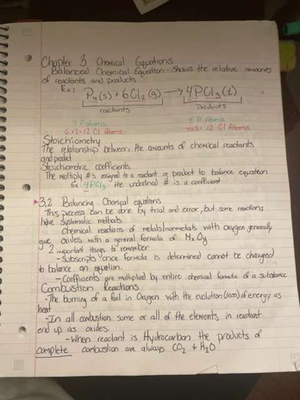 Chapter 3 Chemical Equations
Balanced Chemical Equation - Shows the relative amounts
of reactants and products
Ex: P₄(s) + 6Cl₂(g) → 4PCl₃(l)
reactants Products
4 P Atoms
6x2=12 Cl Atoms 4x3=12 Cl Atoms
Stoichiometry
The relationship between the amounts of chemical reactants
and product
Stoichiometric coefficients
The multiply #'s assigned to a reactant or product to balance equation
Ex: 4PCl₃ the underlined # is a coefficient
3.2 Balancing Chemical equations
This process can be done by trial and error, but some reactions
have Systematic methods.
- Chemical reactions of metals/nonmetals with oxygen generally
give oxides with a general formula of MxOy
2 important things to remember:
- Subscripts once formula is determined cannot be changed
to balance an equation.
- Coefficients are multiplied by entire chemical formula of a substance
Combustion Reactions
- The burning of a fuel in Oxygen with the evolution (loss) of energy as
heat
- In all combustion some or all of the elements in reactant
end up as oxides.
- When reactant is Hydrocarbon the products of
complete combustion are always CO₂ + H₂O